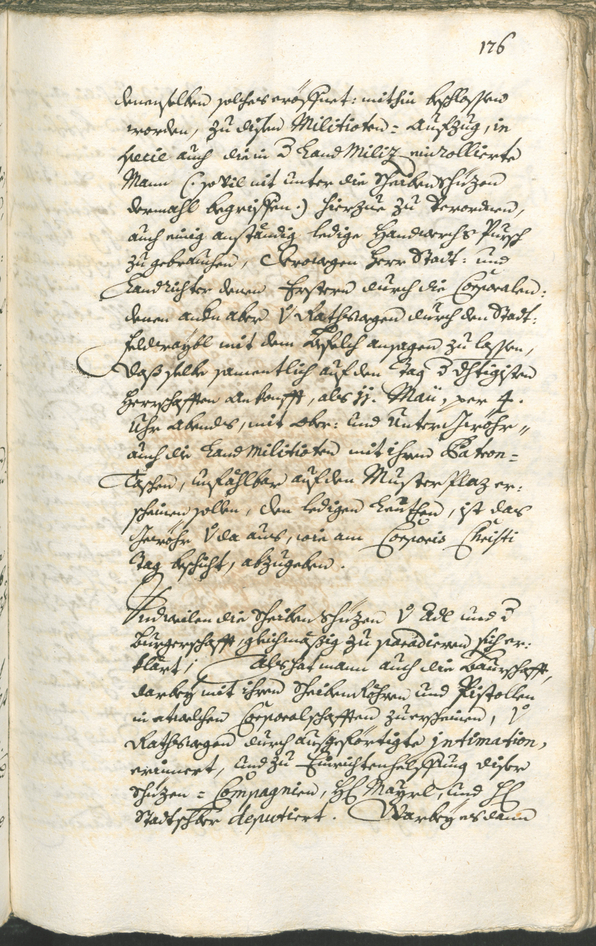 126
denenselben solches eröffnet: mithin beschlossen
worden, zu disen Militioten= Aufzug, in
specie auch die in d Land Miliz einrollierte
Mann (: sovil nit unter die Scheiben Schüzen
dermahl begriffen:) hierzue zu verordnen,
auch einig anständig ledige Handwerchs Pursch
zugebrauchen, Derowegen Herr Stadt: und
Landrichter denen Erstern durch die Corporalen:
denen andn aber v Rathswegen durch den Stadt:
feldwaybl mit dem Befelch ansagen zu lassen,
daß selbe samentlich auf den Tag d
Herrschafften Ankonfft, als 11. Maii, per 4.
Uhr Abends, mit Ober: und Unter Gewöhr,,
auch die Land Militioten mit ihren Patron=
Taschen, unfählbar auf den Muster Plaz er:
scheinen sollen, den ledigen Leuthen, ist das
Gewöhr v da aus, wie am Corporis Christi
Tag beschicht, abzugeben.
Indeme die Scheiben Schüzen v Adl und d
Burgerschafft, gleichmäßig zu paradieren sich er:
klärt; Als hat mann auch die Baurschafft,
darbey mit ihren Scheiben Röhren und Pistollen
in etwelchen Corporalschafften zuerscheinen, v
Rathswegen durch ausgefertigte intimation,
erinnert, und zu Einrichtenhelffung diser
Schüzen = Compagnien, H Mayrl, und H
Stadtschber deputiert. Warbey es dann